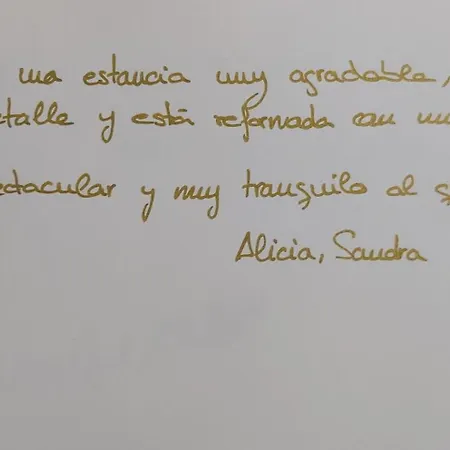 una estancia muy agradable,
etalle y está reformada con mu
ectacular y muy tranquilo al s
Alicia, Sandra